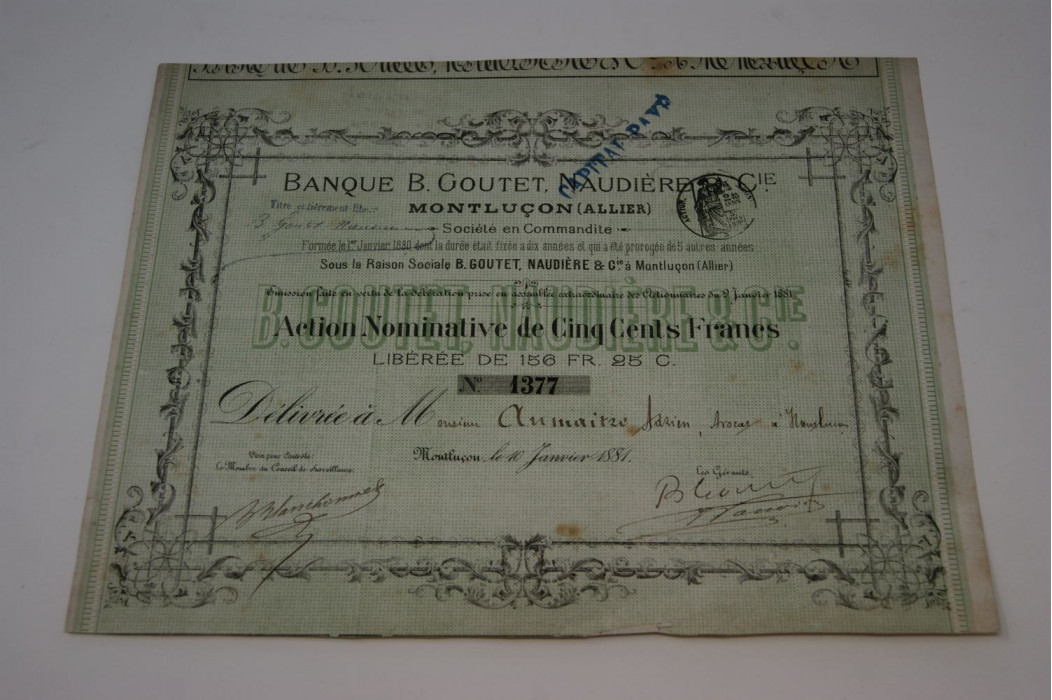 CAPITAL PAYÉ
BANQUE B. GOUTET, NAUDIÈRE & CIE
MONTLUÇON (ALLIER)
Titre entièrement libéré
Société en Commandite
Formée le 1er Janvier 1880 dont la durée était fixée a dix années et qui a été prorogée de 5 autres années
Sous la Raison Sociale B. GOUTET, NAUDIÈRE & Cie à Montluçon (Allier)
Emission faite en vertu de la délibération prise en assemblée extraordinaire des Actionnaires du 9 Janvier 1881
B. GOUTET, NAUDIÈRE & CIE
Action Nominative de Cinq Cents Francs
LIBÉRÉE DE 156 FR. 25 C.
No 1377
Délivrée à Monsieur Aumaitre Adrien, Avocat à Montluçon
Montluçon, le 10 Janvier 1881.
Vu pour Contrôle:
Le Membre du Conseil de Surveillance.
Les Gérants